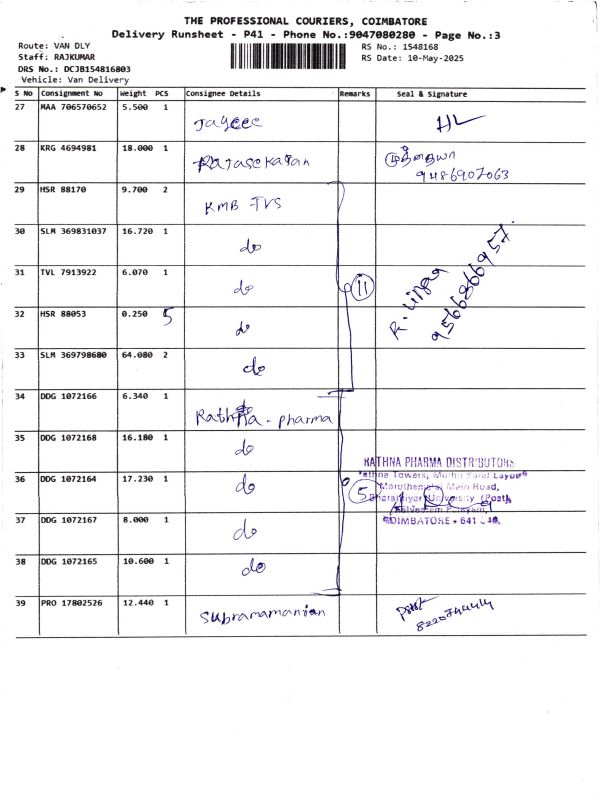 THE PROFESSIONAL COURIERS, COIMBATORE
Delivery Runsheet - P41 - Phone No.:9047080280 - Page No.:3
Route: VAN DLY
RS No.: 1548168
Staff: RAJKUMAR
RS Date: 10-May-2025
DRS No.: DCJB154816803
Vehicle: Van Delivery
S No Consignment No Weight PCS Consignee Details Remarks Seal & Signature
27 MAA 706570652 5.500 1 Jayeee
28 KRG 4694981 18.000 1 Rajasekaran முத்தையா
9486907063
29 HSR 88170 9.700 2 KMB TVS
30 SLM 369831037 16.720 1 do
31 TVL 7913922 6.070 1 do 11 9566866957
32 HSR 88053 0.250 5 do
33 SLM 369798680 64.080 2 do
34 DDG 1072166 6.340 1 Rathna - pharma
35 DDG 1072168 16.180 1 do
RATHNA PHARMA DISTRIBUTORS
36 DDG 1072164 17.230 1 do 5
Towers,
Main Road,
University (Post),
COIMBATORE - 641
37 DDG 1072167 8.000 1 do
38 DDG 1072165 10.600 1 do
39 PRO 17802526 12.440 1 Subramamanian